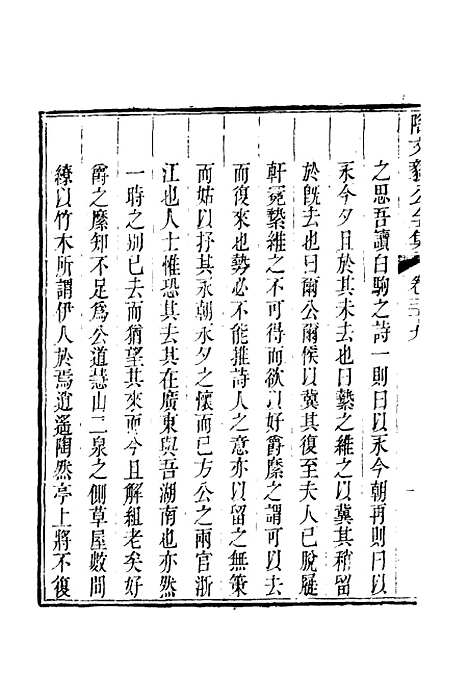 陶文毅公全集
卷三十九
之思吾讀白駒之詩一則曰以永今朝再則曰以
永今夕且於其未去也曰縶之維之以冀其稍留
於旣去也曰爾公爾侯以冀其復至夫人已脫屣
軒冕縶維之不可得而欲以好爵縻之謂可以去
而復來也勢必不能推詩人之意亦以留之無策
而姑以抒其永朝永夕之懷而已方公之兩官浙
江也人士惟恐其去其在廣東與吾湖南也亦然
一時之別已去而猶望其來而今且解組老矣好
爵之縻知不足爲公道慧山二泉之側草屋數間
繚以竹木所謂伊人於焉逍遙陶然亭上將不復